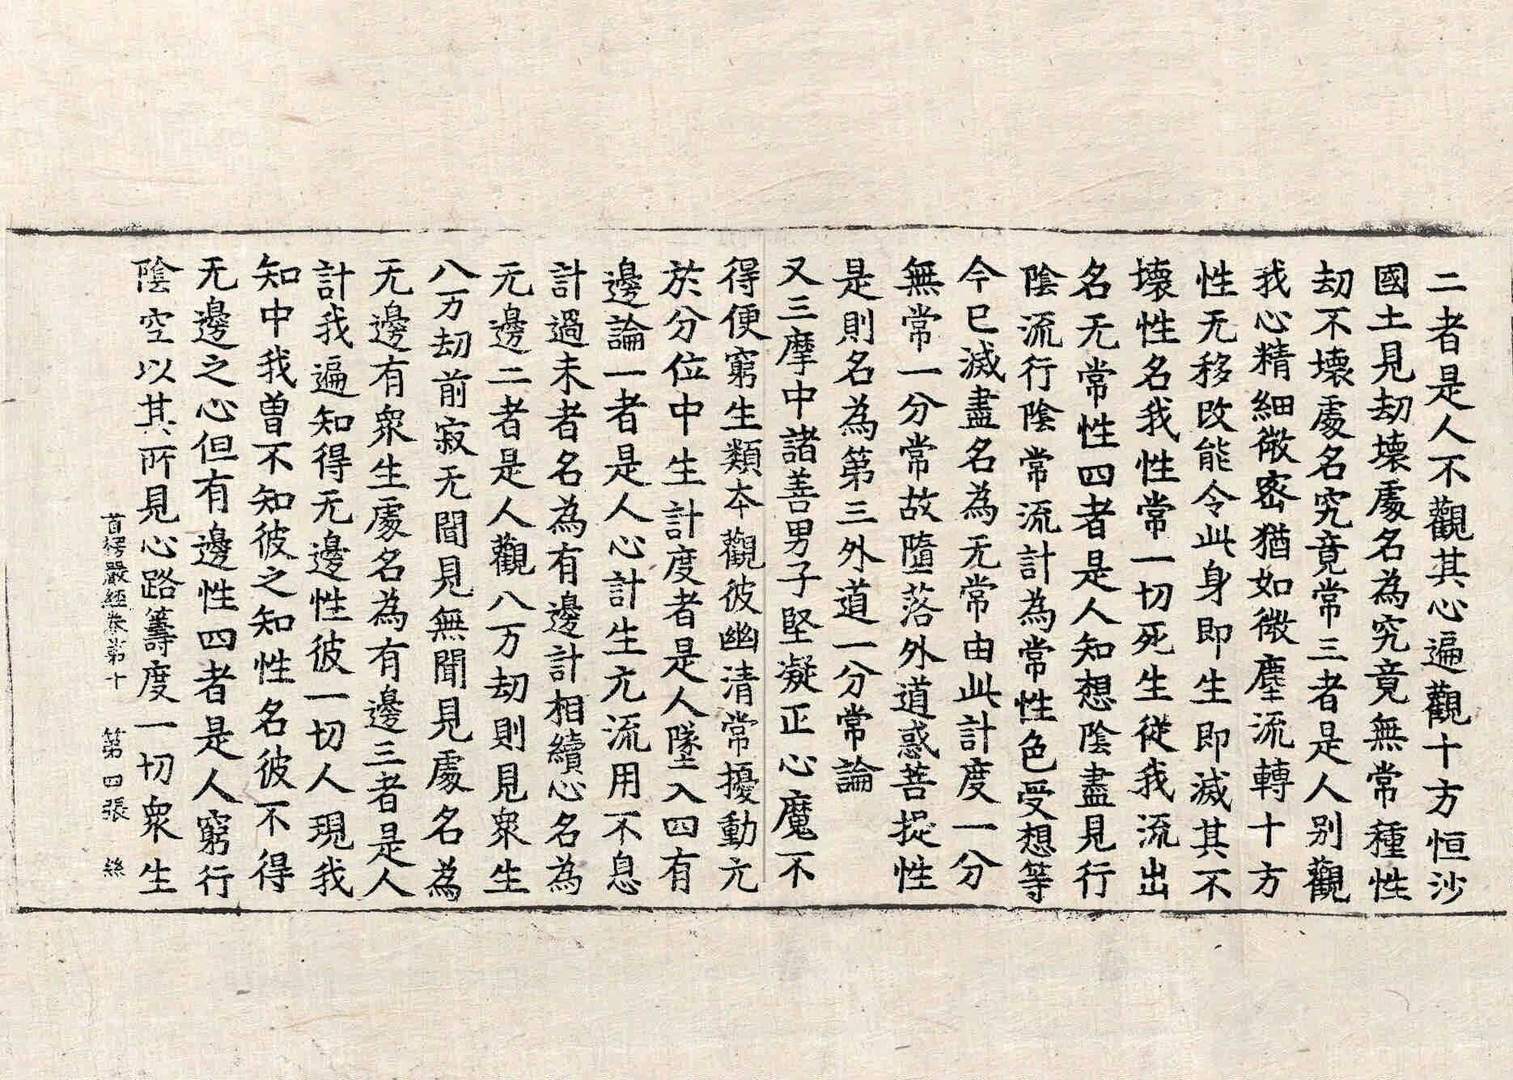 二者是人不觀其心遍觀十方恒沙
國土見劫壞處名為究竟無常種性
劫不壞處名究竟常三者是人别觀
我心精細微密猶如微塵流轉十方
性无移改能令此身即生即滅其不
壞性名我性常一切死生從我流出
名无常性四者是人知想陰盡見行
陰流行陰常流計為常性色受想等
今已滅盡名為无常由此計度一分
無常一分常故墮落外道惑菩提性
是則名為第三外道一分常論
又三摩中諸善男子堅凝正心魔不
得便窮生類本觀彼幽清常擾動元
於分位中生計度者是人墜入四有
邊論一者是人心計生元流用不息
計過未者名為有邊計相續心名為
无邊二者是人觀八万劫則見衆生
八万劫前寂无聞見無聞見處名為
无邊有衆生處名為有邊三者是人
計我遍知得无邊性彼一切人現我
知中我曾不知彼之知性名彼不得
无邊之心但有邊性四者是人窮行
陰空以其所見心路籌度一切衆生
首楞嚴經卷第十 第四張 絲